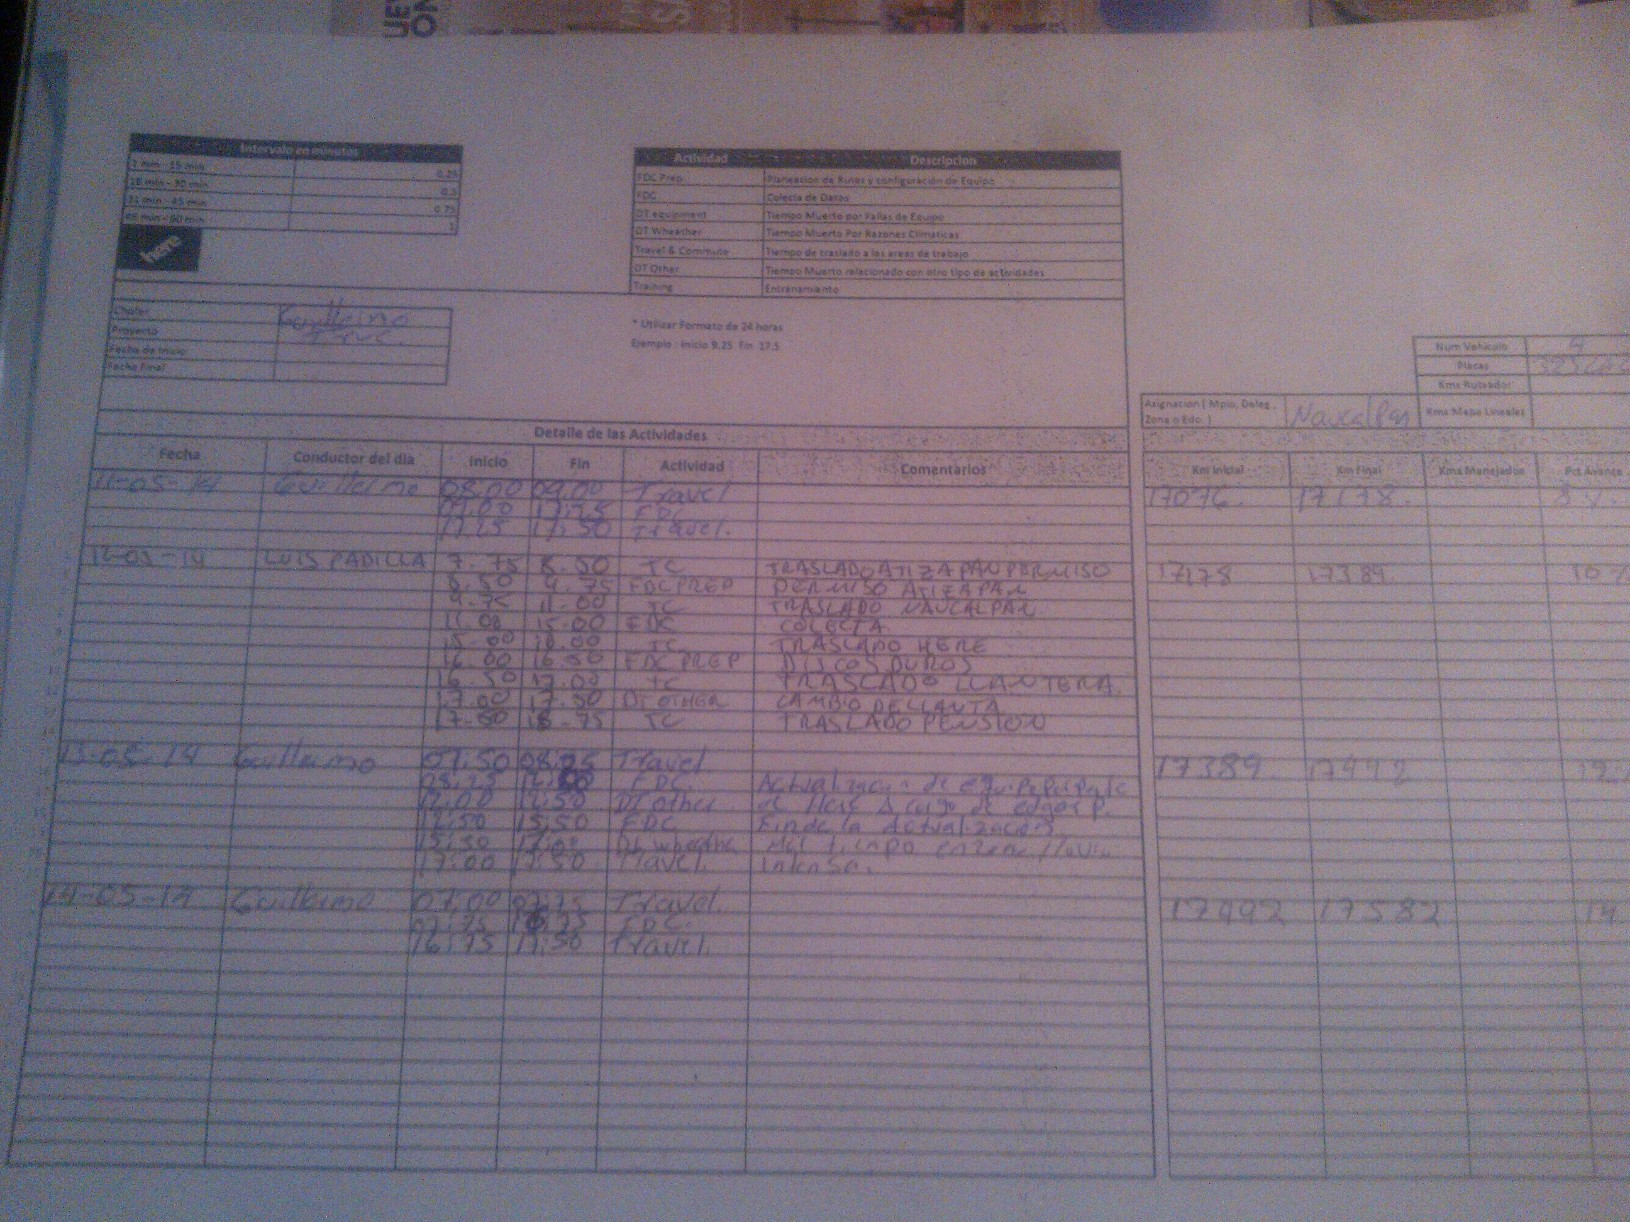 Intervalo en minutos
1 min - 15 min 0.25
16 min - 30 min 0.5
31 min - 45 min 0.75
46 min - 60 min 1
here
Actividad Descripcion
FDC Prep Planeacion de Rutas y configuración de Equipo
FDC Colecta de Datos
DT equipment Tiempo Muerto por Fallas de Equipo
DT Wheather Tiempo Muerto Por Razones Climaticas
Travel & Commute Tiempo de traslado a las areas de trabajo
DT Other Tiempo Muerto relacionado con otro tipo de actividades
Training Entranamiento
Chofer Guillermo
Proyecto
Fecha de Inicio
Fecha Final
* Utilizar Formato de 24 horas
Ejemplo : Inicio 9.25 Fin 17.5
Num Vehiculo 4
Placas
Kms Ruteador
Kms Mapa Lineales
Asignacion ( Mpio, Deleg, Zona o Edo. ) Naucalpan
Detalle de las Actividades
Fecha Conductor del dia Inicio Fin Actividad Comentarios Km Inicial Km Final Kms Manejados Pct Avance
Guillermo 08.00 09.00 Travel 17076. 17178. 8 %
09.00 17.25 FDC
17.25 17.50 Travel.
12-05-14 LUIS PADILLA 7.75 8.50 TC TRASLADO ATIZAPAN PERMISO 17178 17389. 10 %
8.50 9.75 FDC PREP PERMISO ATIZAPAN
9.75 11.00 TC TRASLADO NAUCALPAN
11.00 15.00 FDC COLECTA
15.00 16.00 TC TRASLADO HERE
16.00 16.50 FDC PREP DISCOS DUROS
16.50 17.00 TC TRASLADO LLANTERA.
17.00 17.50 DT OTHER CAMBIO DE LLANTA
17.50 18.75 TC TRASLADO PENSION
13-05-14 Guillermo 07.50 Travel 17389. 17492
12.00 FDC. Actualizacion de
12.00 12.50 DT other de Here A cargo de edgar P.
12.50 15.50 FDC Fin de la Actualizacion
15.50 17.00 DT wheather Mal tiempo lluvia
17.00 17.50 Travel. intensa.
14-05-14 Guillermo 07.00 07.75 Travel. 17492 17582 14
07.75 16.75 FDC.
16.75 17.50 Travel.